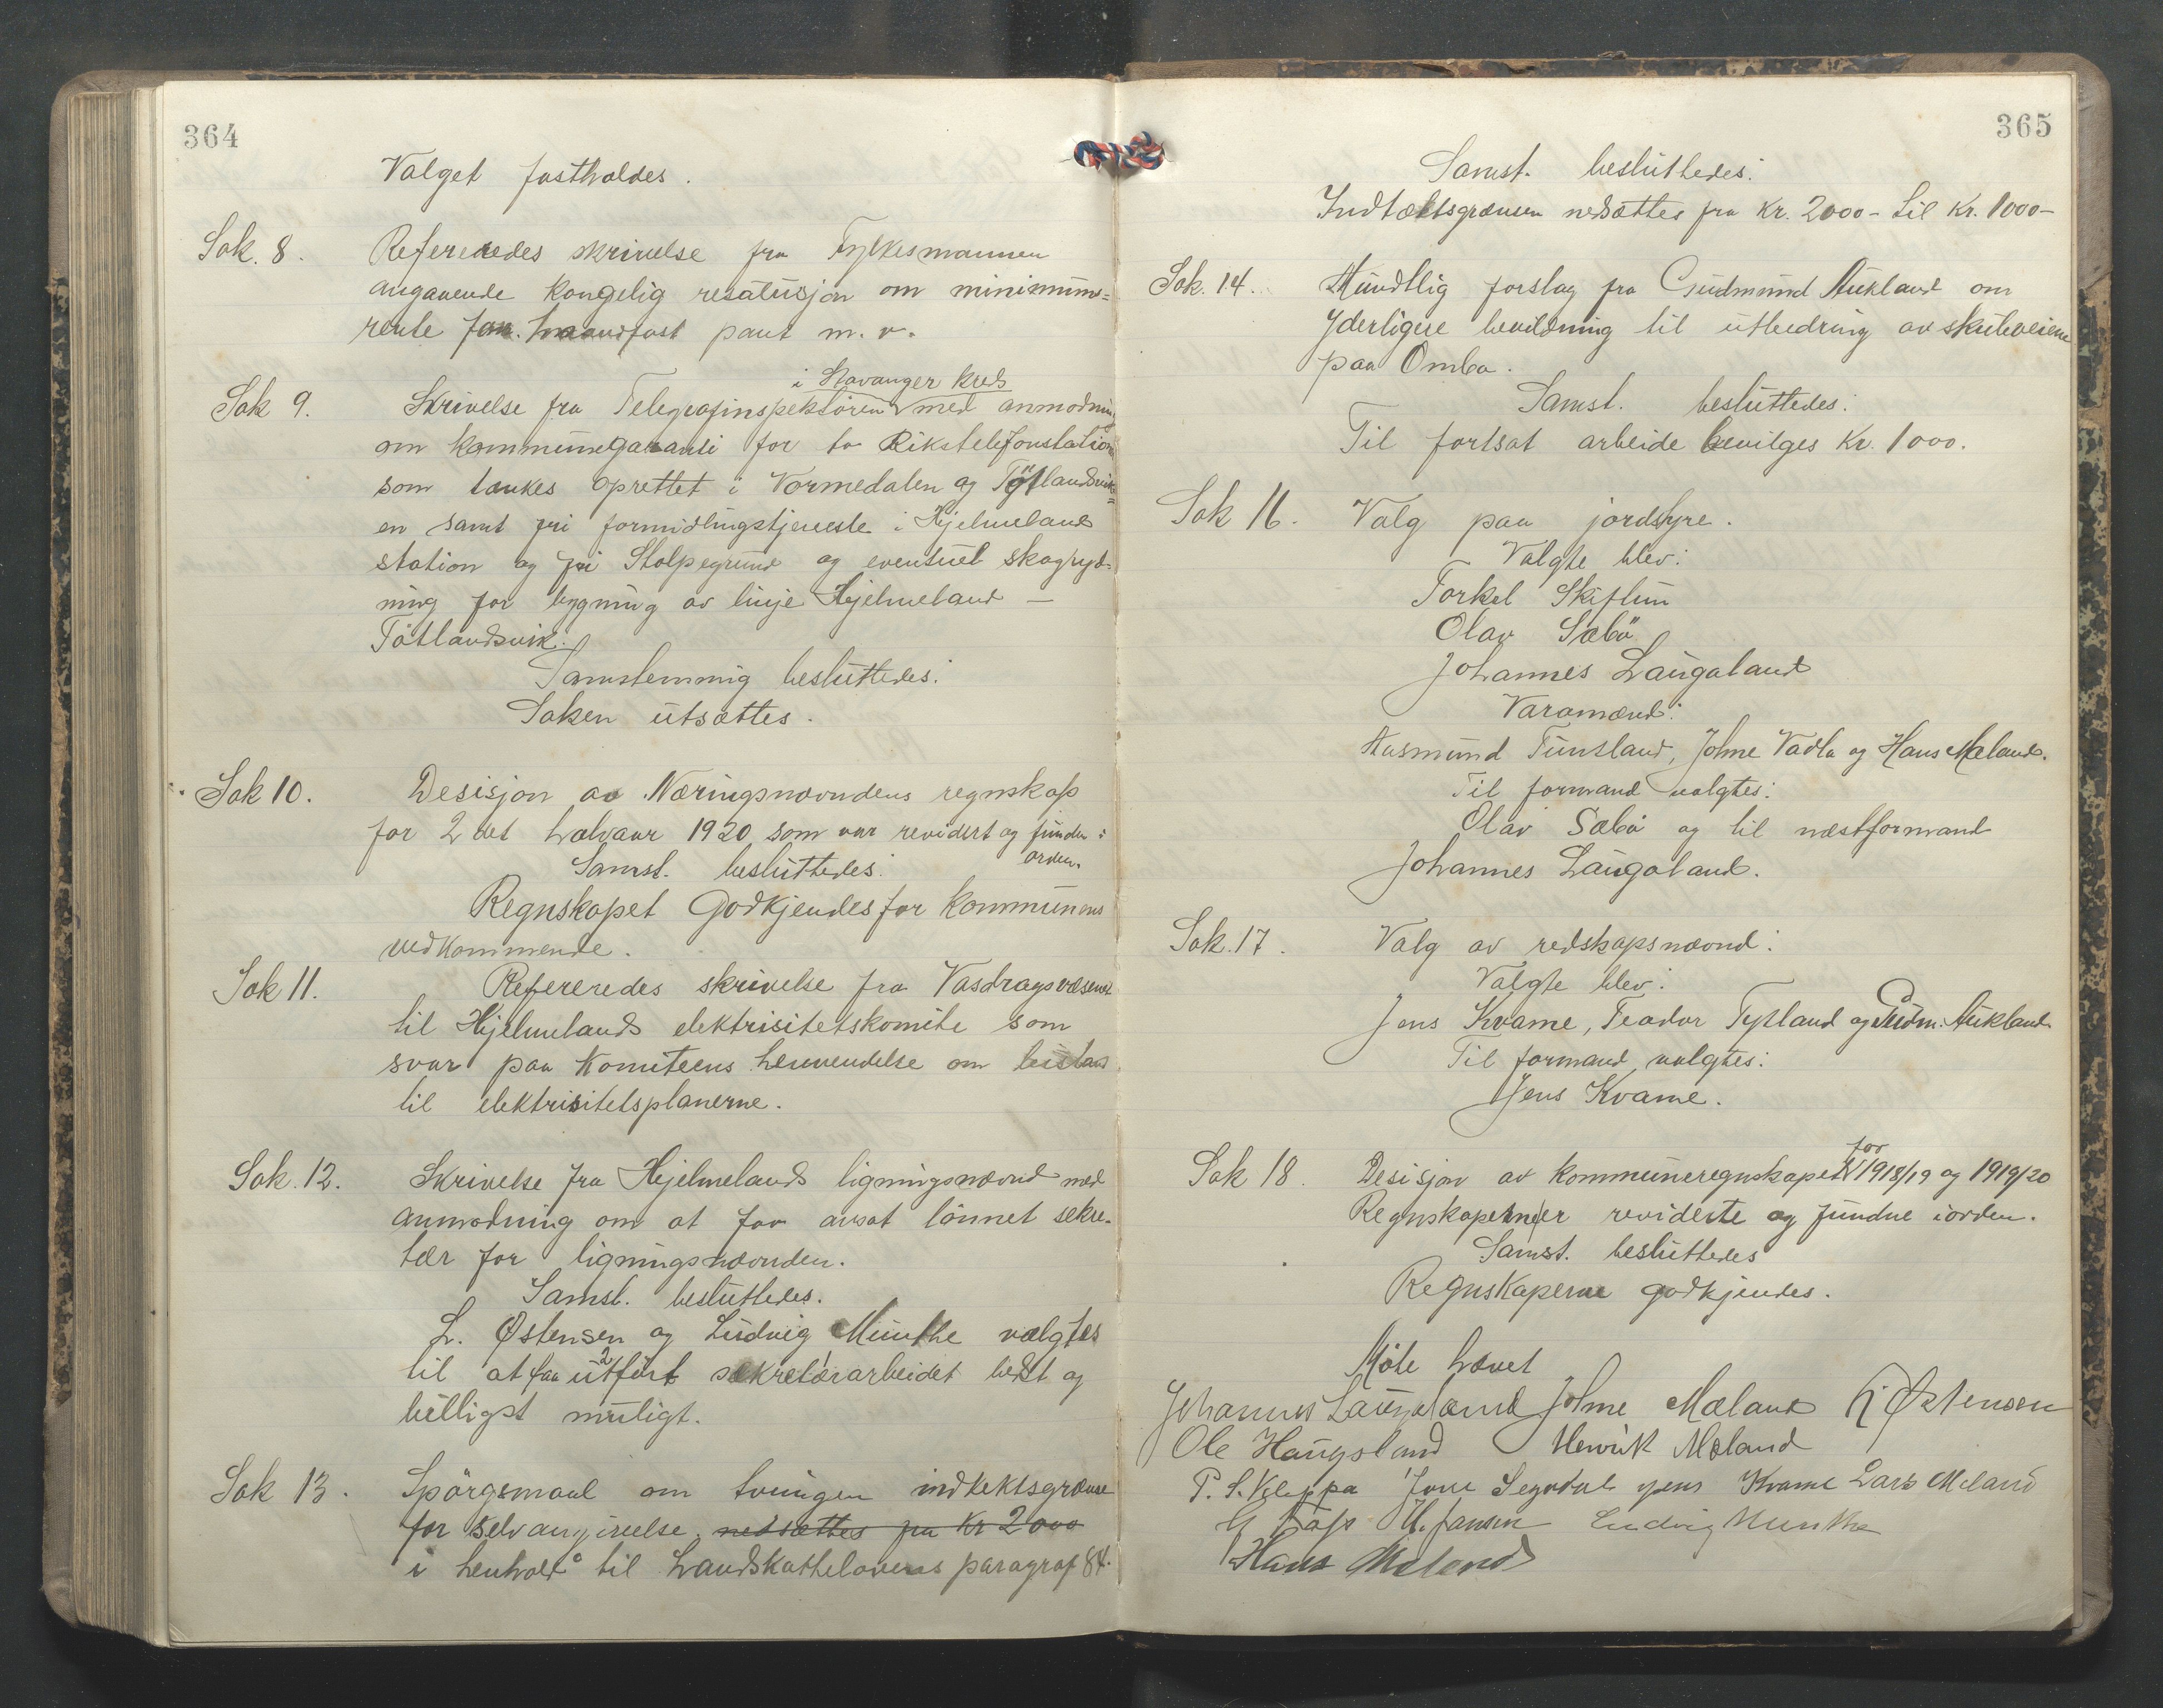 364
Valget fastholdes.
Sak. 8. Refereredes skrivelse fra Fylkesmannen
angaaende kongelig resolusjon om minimums=
rente for haandfast pant m. v.
i Stavanger kreds
Sak 9. Skrivelse fra Telegrafinspektören med anmodning
om kommunegaranti for to Rikstelefonstation
som tænkes oprettet i Vormedalen og TöTlandsvik=
en samt fri formidlingstjeneste i Hjelmeland
station og fri Stolpegrund og eventuel skogryd=
ning for bygning av linje Hjelmeland —
Tötlandsvik.
Samstemmig besluttedes:
Saken utsættes.
Sak 10. Desisjon av Næringsnævndens regnskap
for 2det halvaar 1920 som var revidert og funden i
orden.
Samst. besluttedes:
Regnskapet Godkjendes for kommunens
vedkommende.
Sak 11. Refereredes skrivelse fra Vasdragsvæsenet
til Hjelmelands elektrisitetskomite som
svar paa komiteens henvendelse om bistand
til elektrisitetsplanerne.
Sak. 12. Skrivelse fra Hjelmelands ligningsnævnd med
anmodning om at faa ansat lönnet sekre-
tær for ligningsnævnden.
Samst. besluttedes.
L. Østensen og Ludvig Munthe vælgtes
til at faa utfört sekretærarbeidet bedst og
billigst muligt.
Sak 13. Spörgsmaal om tvungen indtektsgrænse
for selvangivelse. nedsættes fra Kr 2000
i henhold til Landskattelovens paragraf 84.
365
Samst. besluttedes:
Indtæktsgrænsen nedsættes fra Kr. 2000- til Kr. 1000-
Sak. 14. Mundtlig forslag fra Gudmund Aukland om
yderligere bevildning til utbedring av skuleveiene
paa Ombo.
Samst. besluttedes:
Til fortsat arbeide bevilges Kr. 1000.
Sak 16. Valg paa jordstyre.
Valgte blev:
Torkel Skiftun
Olav Sæbö
Johannes Laugaland
Varamænd:
Aasmund Tunsland, Johne Vadla og Hans Mæland.
Til formand valgtes:
Olav Sæbö og til næstformand
Johannes Laugaland.
Sak. 17. Valg av redskapsnævnd:
Valgte blev:
Jens Kvame, Teodor Tytland og Gudm. Aukland
Til formand valgtes:
Jens Kvame.
for
Sak 18. Desisjon av kommuneregnskapet 1918/19 og 1919/20
Regnskaperne er reviderte og fundne iorden.
Samst. besluttedes
Regnskaperne godkjendes.
Möte hævet
Johannes Laugaland Johne Mæland L Østensen
Ole Haugsland Henrik Mæland
P. S. Kleppa Jone Segadal Jens Kvame Lars Mæland
H. Jansen Ludvig Munthe
Hans Mæland